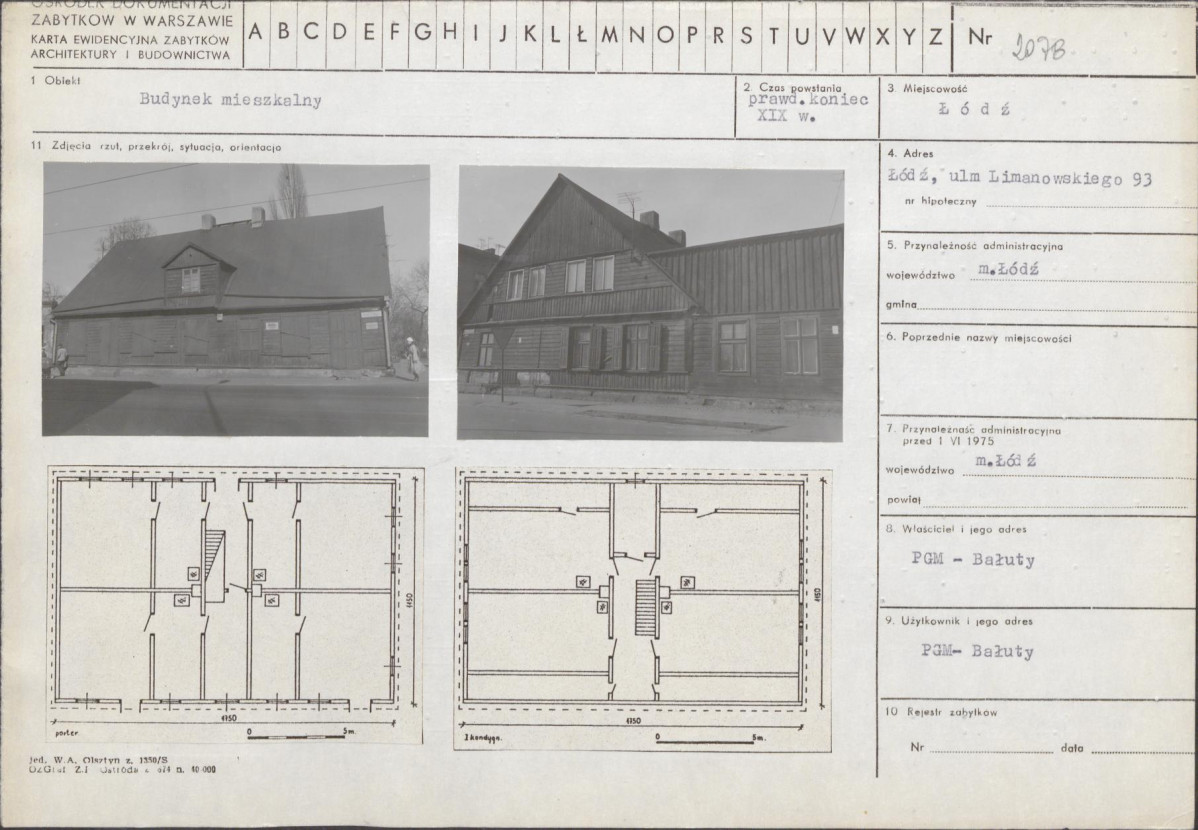 OŚRODEK DOKUMENTACJI
ZABYTKÓW W WARSZAWIE
KARTA EWIDENCYJNA ZABYTKÓW
ARCHITEKTURY I BUDOWNICTWA
A B C D E F G H I J K L Ł M N O P R S T U V W X Y Z
Nr 2078
1 Obiekt
Budynek mieszkalny
2. Czas powstania
prawd. koniec
XIX w.
3. Miejscowość
Ł ó d ź
11 Zdjęcia rzut, przekrój, sytuacja, orientacja
4. Adres
Łódź, ulm Limanowskiego 93
nr hipoteczny
5. Przynależność administracyjna
województwo m.Łódź
gmina
6. Poprzednie nazwy miejscowości
7. Przynależność administracyjna
przed 1 VI 1975
województwo m.Łódź
powiat
8. Właściciel i jego adres
PGM - Bałuty
9. Użytkownik i jego adres
PGM- Bałuty
10 Rejestr zabytków
Nr data
1150
1750
parter.
0 5m.
1150
1750
I kondygn.
0 5m.
Jed. W.A. Olsztyn z. 1350/S
OZGraf Z.I Ostróda z. 674 n. 40 000